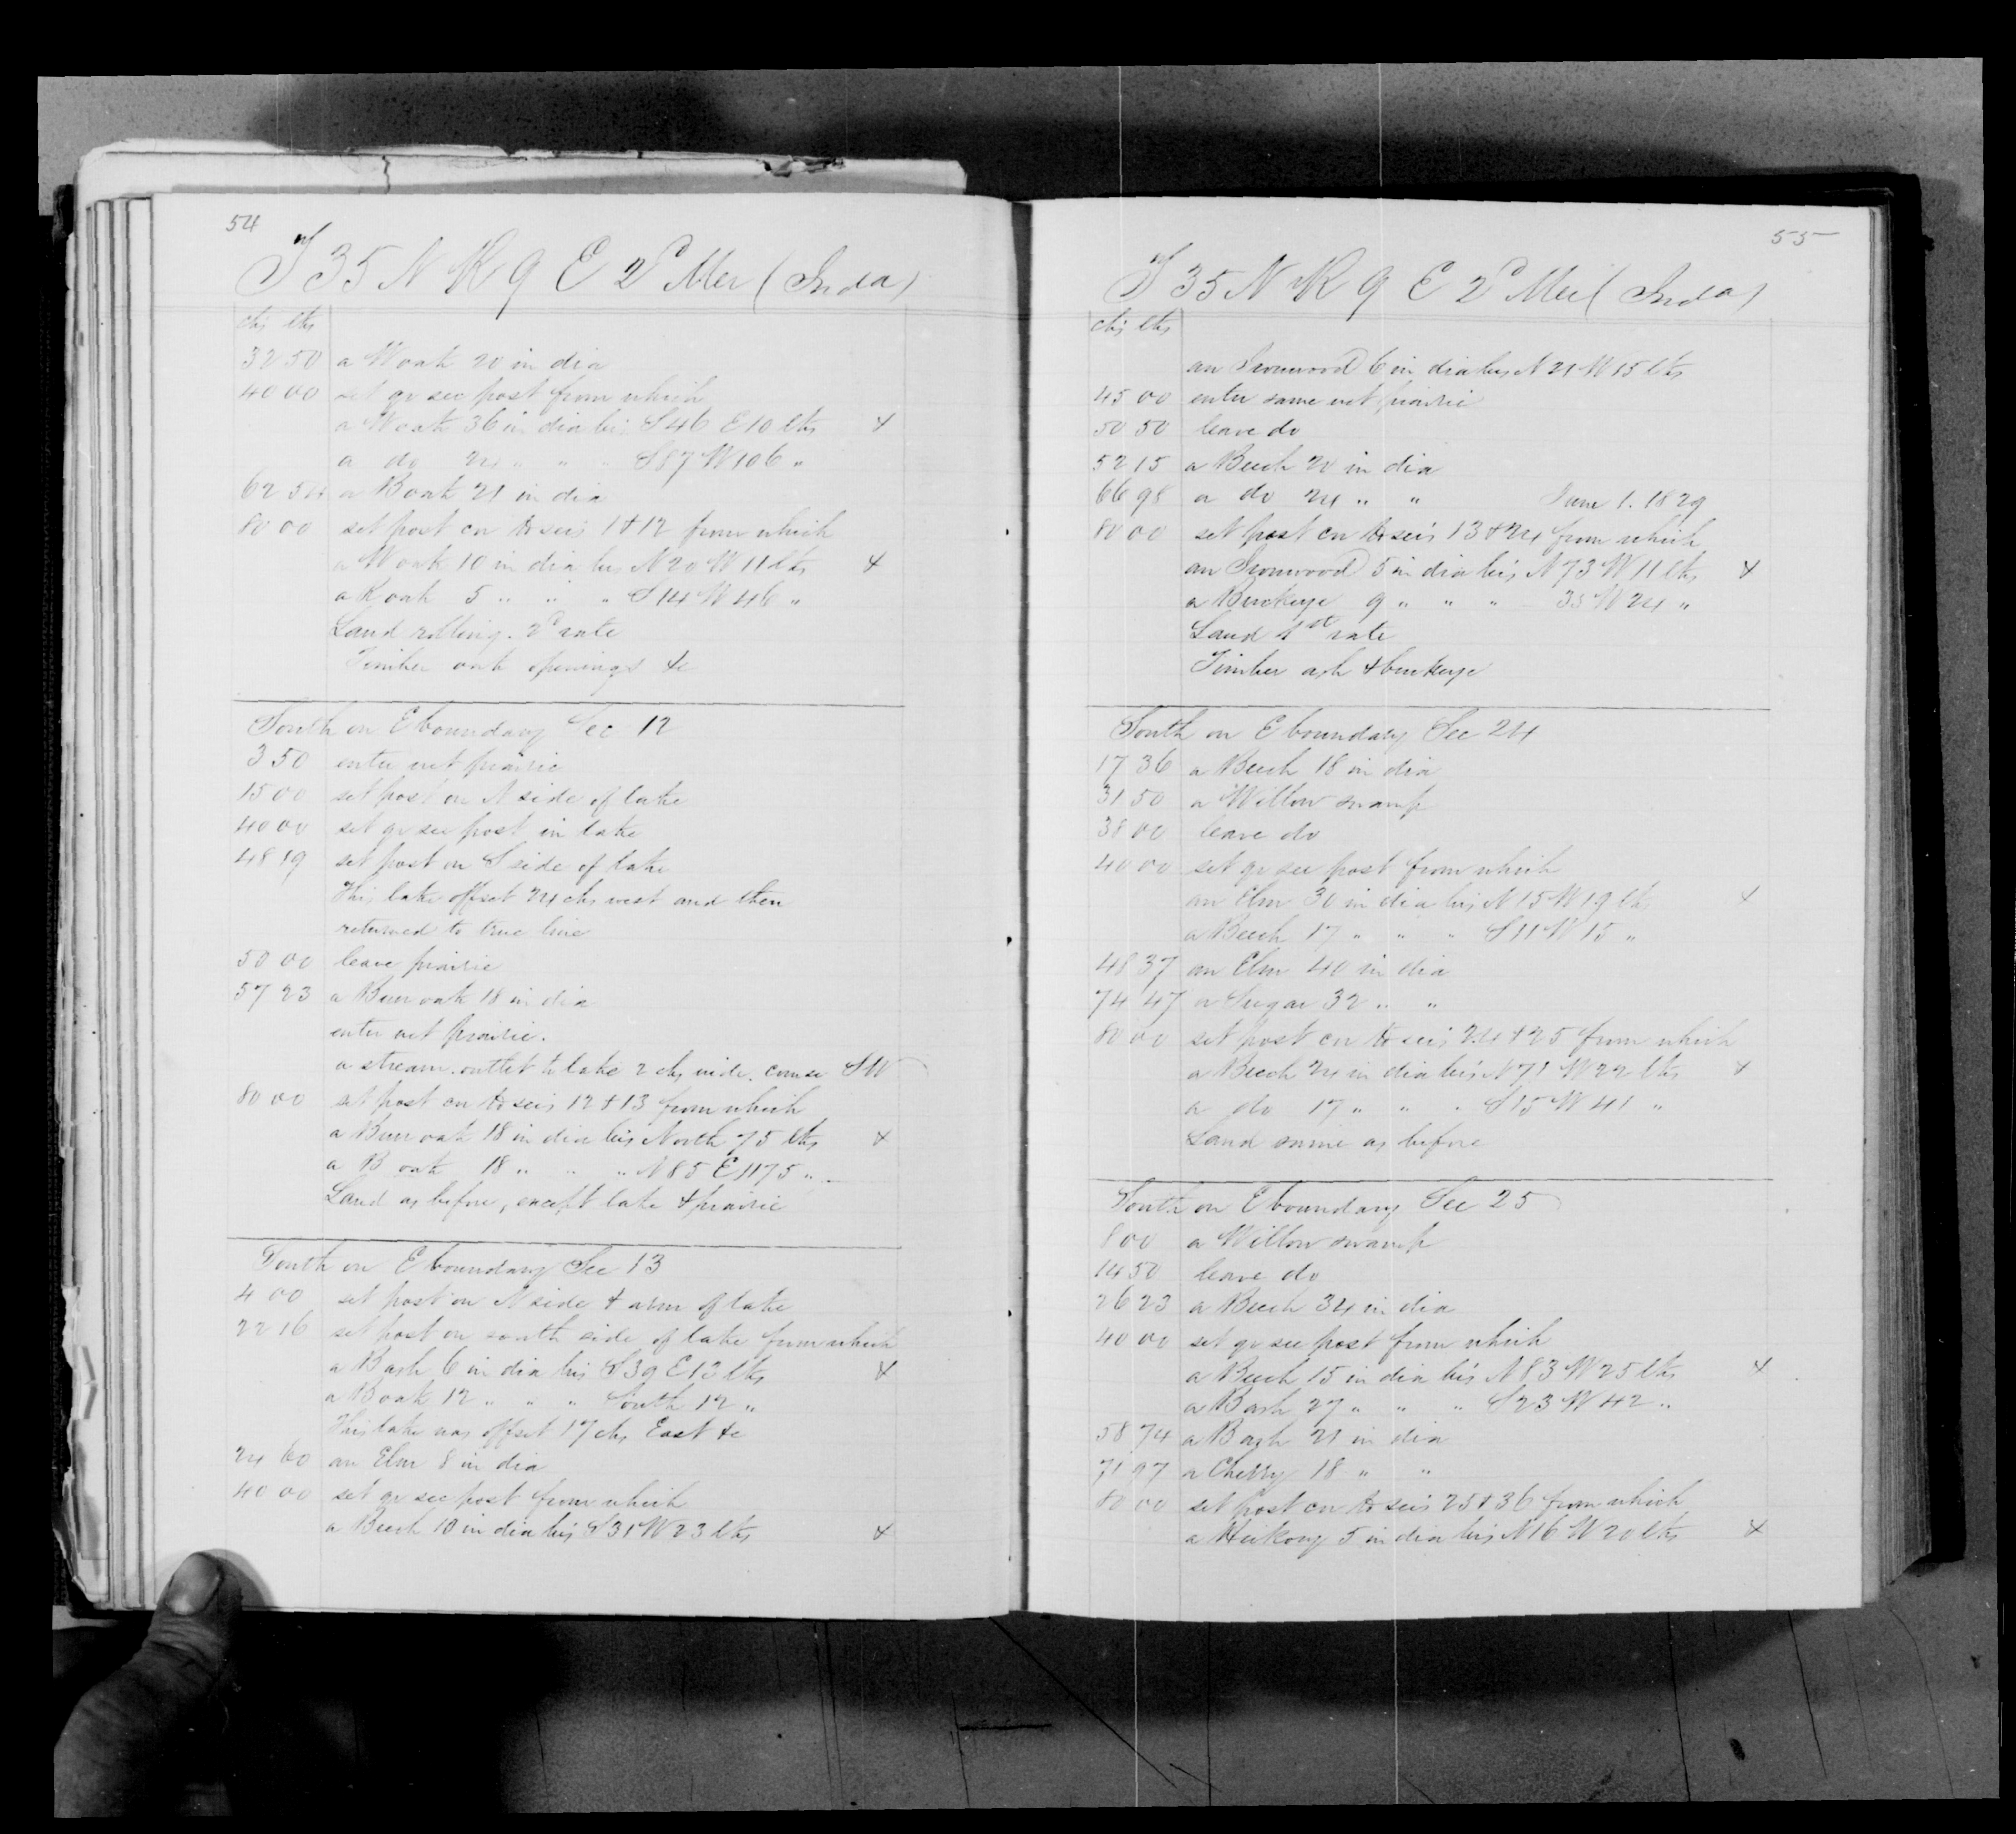 54
T 35 N R 9 E 2d Mer (Inda)
chs lks
32 50 a W oak 20 in dia
40 00 set qr sec post from which
a W oak 36 in dia brs S 46 E 10 lks +
a do 24 " " " S 87 W 106 "
62 54 a B oak 21 in dia
80 00 set post cor to secs 1 & 12 from which
a W oak 10 in dia brs N 20 W 11 lks +
a R oak 5 " " " S 14 W 46 "
Land rolling. 2d rate
Timber oak openings &c
South on E boundary Sec 12
3 50 enter wet prairie
15 00 set post on N side of lake
40 00 set qr sec post in lake
48 19 set post on S side of lake
This lake offset 24 chs west and then
returned to true line
50 00 leave prairie
57 23 a Burr oak 18 in dia
enter wet prairie.
a stream. outlet to lake 2 chs wide. course SW
80 00 set post cor to secs 12 & 13 from which
a Burr oak 18 in dia brs North 75 lks +
a B oak 18 " " " N 85 E 1175 "
Land as before, except lake & prairie
South on E boundary Sec 13
4 00 set post on N side & arm of lake
22 16 set post on south side of lake from which
a B ash 6 in dia brs S 39 E 13 lks +
a B oak 12 " " " South 12 "
This lake was offset 17 chs East &c
24 60 an Elm 8 in dia
40 00 set qr sec post from which
a Beech 10 in dia brs S 31 W 23 lks +
55
T 35 N R 9 E 2d Mer (Inda)
chs lks
an Ironwood 6 in dia brs N 21 W 15 lks
45 00 enter same wet prairie
50 50 leave do
52 15 a Beech 20 in dia
66 98 a do 24 " " June 1. 1829
80 00 set post cor to secs 13 & 24 from which
an Ironwood 5 in dia brs N 73 W 11 lks +
a Buckeye 9 " " " W 24 "
Land 1st rate
Timber ash & buckeye
South on E boundary Sec 24
17 36 a Beech 18 in dia
31 50 a Willow swamp
38 00 leave do
40 00 set qr sec post from which
an Elm 30 in dia brs N 15 W 19 lks +
a Beech 17 " " " S 11 W 15 "
48 37 an Elm 40 in dia
74 47 a Sugar 32 " "
80 00 set post cor to secs 24 & 25 from which
a Beech 24 in dia brs N 71 W 22 lks +
a do 17 " " " S 15 W 41 "
Land same as before
South on E boundary Sec 25
8 00 a Willow swamp
14 50 leave do
26 23 a Beech 34 in dia
40 00 set qr sec post from which
a Beech 15 in dia brs N 83 W 25 lks +
a B ash 27 " " " S 23 W 42 "
58 74 a B ash 21 in dia
71 97 a Cherry 18 " "
80 00 set post cor to secs 25 & 36 from which
a Hickory 5 in dia brs N 16 W 20 lks +